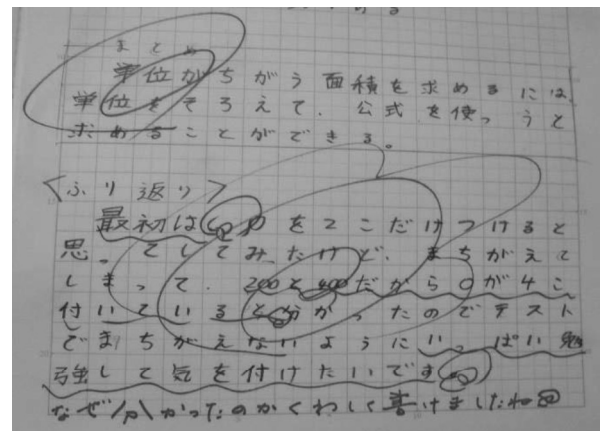 まとめ
単位がちがう面積を求めるには、
単位をそろえて、公式を使うと
求めることができる。
〈ふり返り〉
最初は0を2こだけつけると
思ってしてみたけど、まちがえて
しまって、200と400だから0が4こ
付いていると分かったのでテスト
でまちがえないようにいっぱい勉
強して気を付けたいです。
なぜ分かったのかくわしく書けましたね